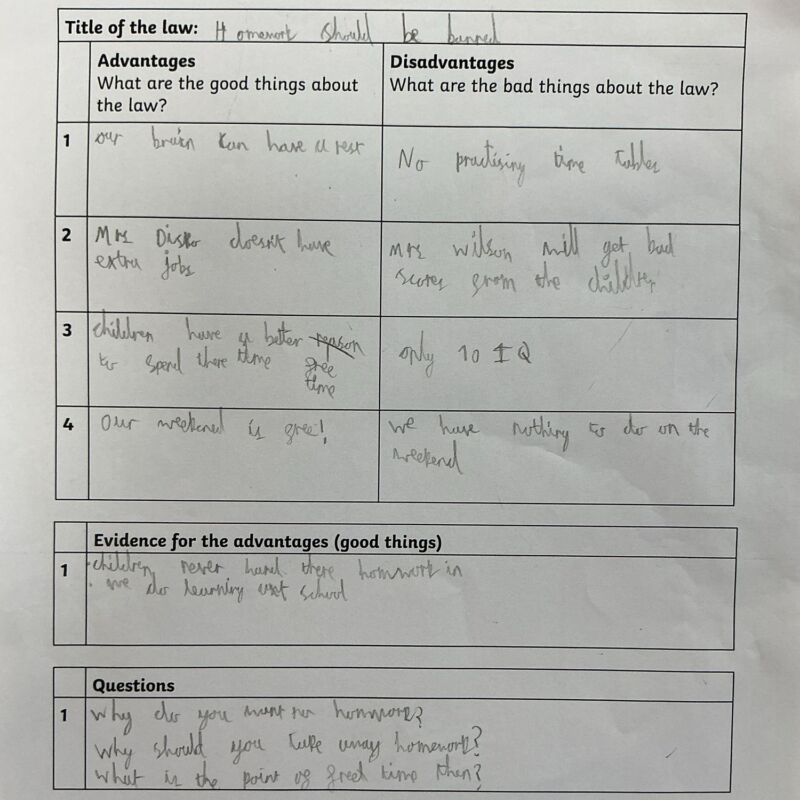 Title of the law: Homework should be banned
Advantages
What are the good things about
the law?
Disadvantages
What are the bad things about the law?
1
our brain can have a rest
No practising time tables
2
Mrs Disko doesn't have
extra jobs
Mrs Wilson will get bad
scores from the children
3
children have a better reason
to spend there time free
time
only 10 IQ
4
Our weekened is free!
We have nothing to do on the
weekend
Evidence for the advantages (good things)
1
· children never hand there homwork in
· we do learning at school
Questions
1
Why do you want no homwork?
Why should you take away homework?
What is the point of freel time then?